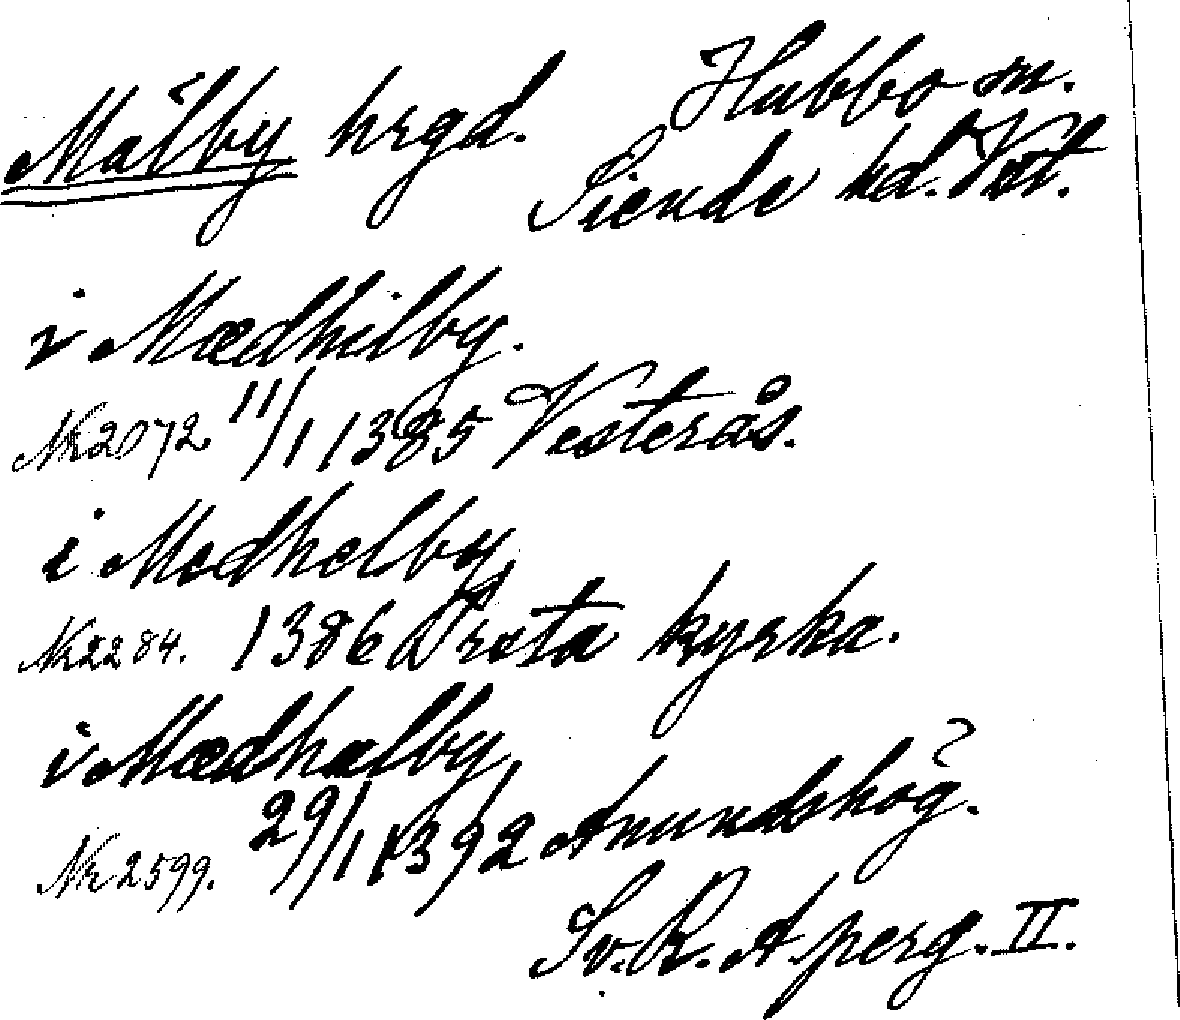 Målby hrgd. Hubbo sn.
Siende hd. Vstl.
i Mædhilby.
Nr 2072 11/1 1385 Vesterås.
i Medhelby
Nr 2284. 1386 Vreta kyrka.
i Mædhælby
Nr 2599. 29/1 1392 Anundshög.
Sv. R. A. perg. II.